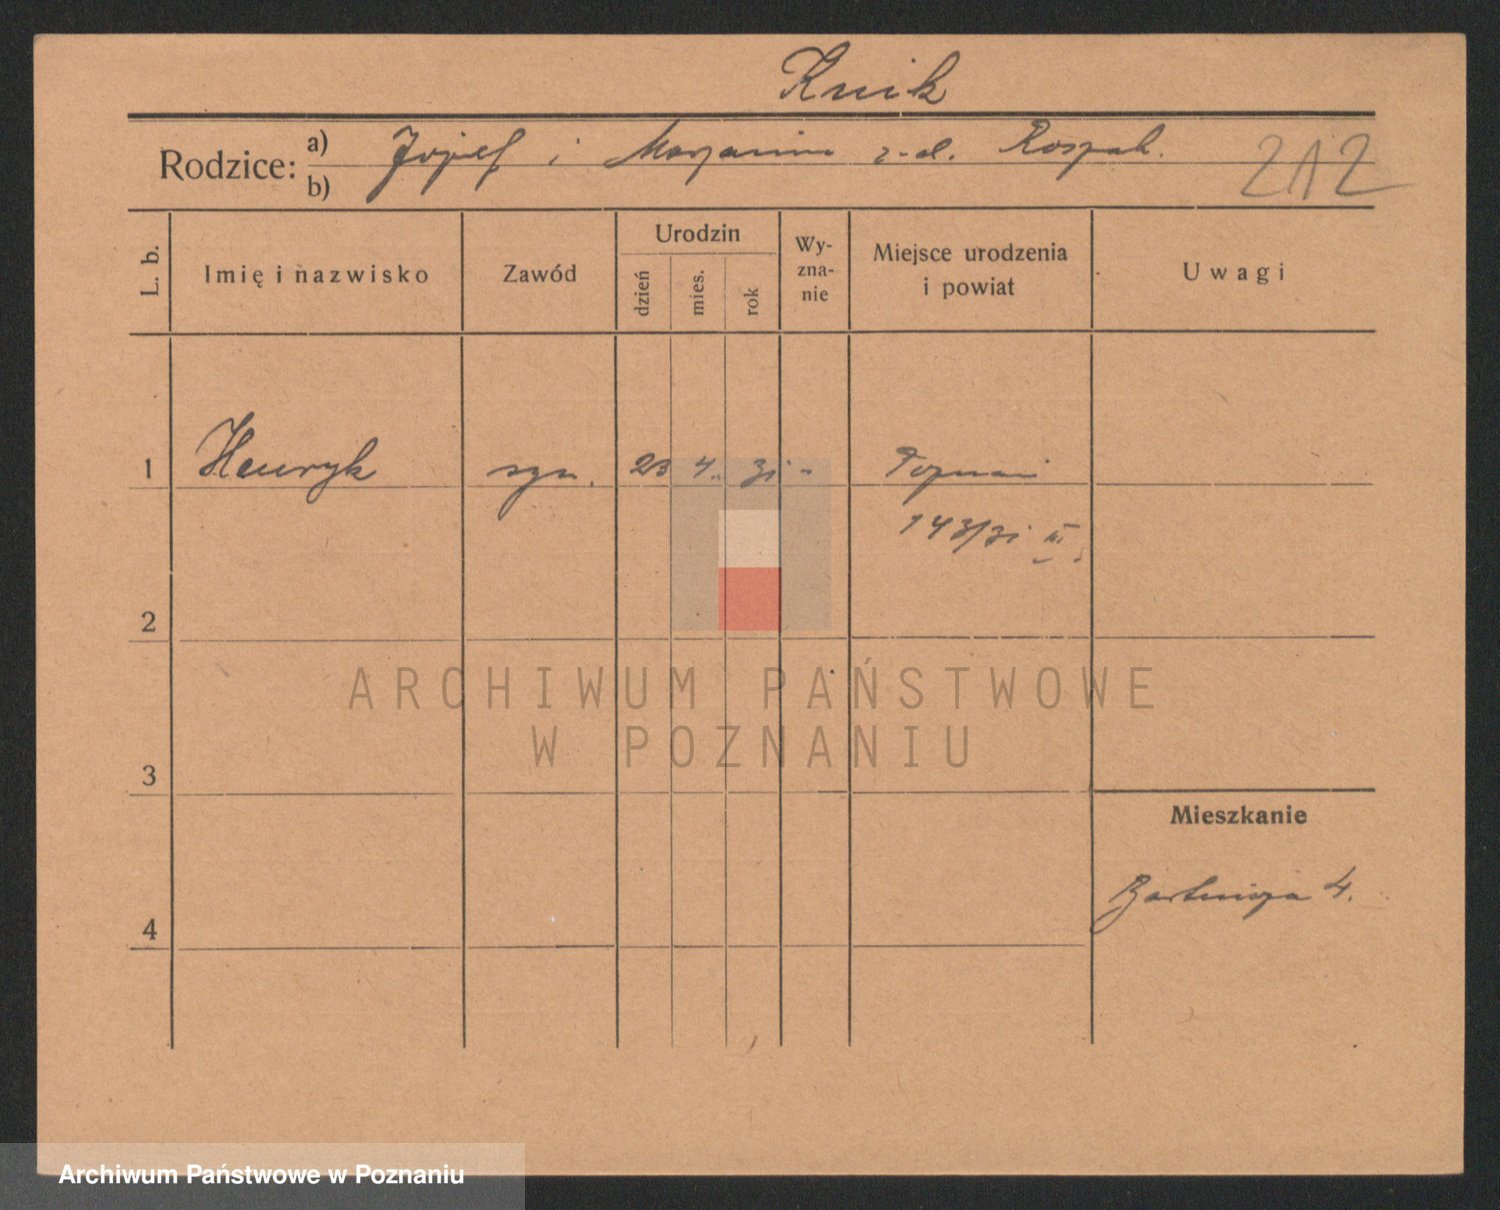 Knik
Rodzice: a) Józef i Maryanna z-d. Rospek.
b)
212
L. b. Imię i nazwisko Zawód Urodzin dzień mies. rok Wy-zna-nie Miejsce urodzenia i powiat Uwagi
1 Henryk syn. 23 4. 31 - Poznań
143/31 III.
2
ARCHIWUM PAŃSTWOWE
W POZNANIU
3
Mieszkanie
4.
4
Archiwum Państwowe w Poznaniu